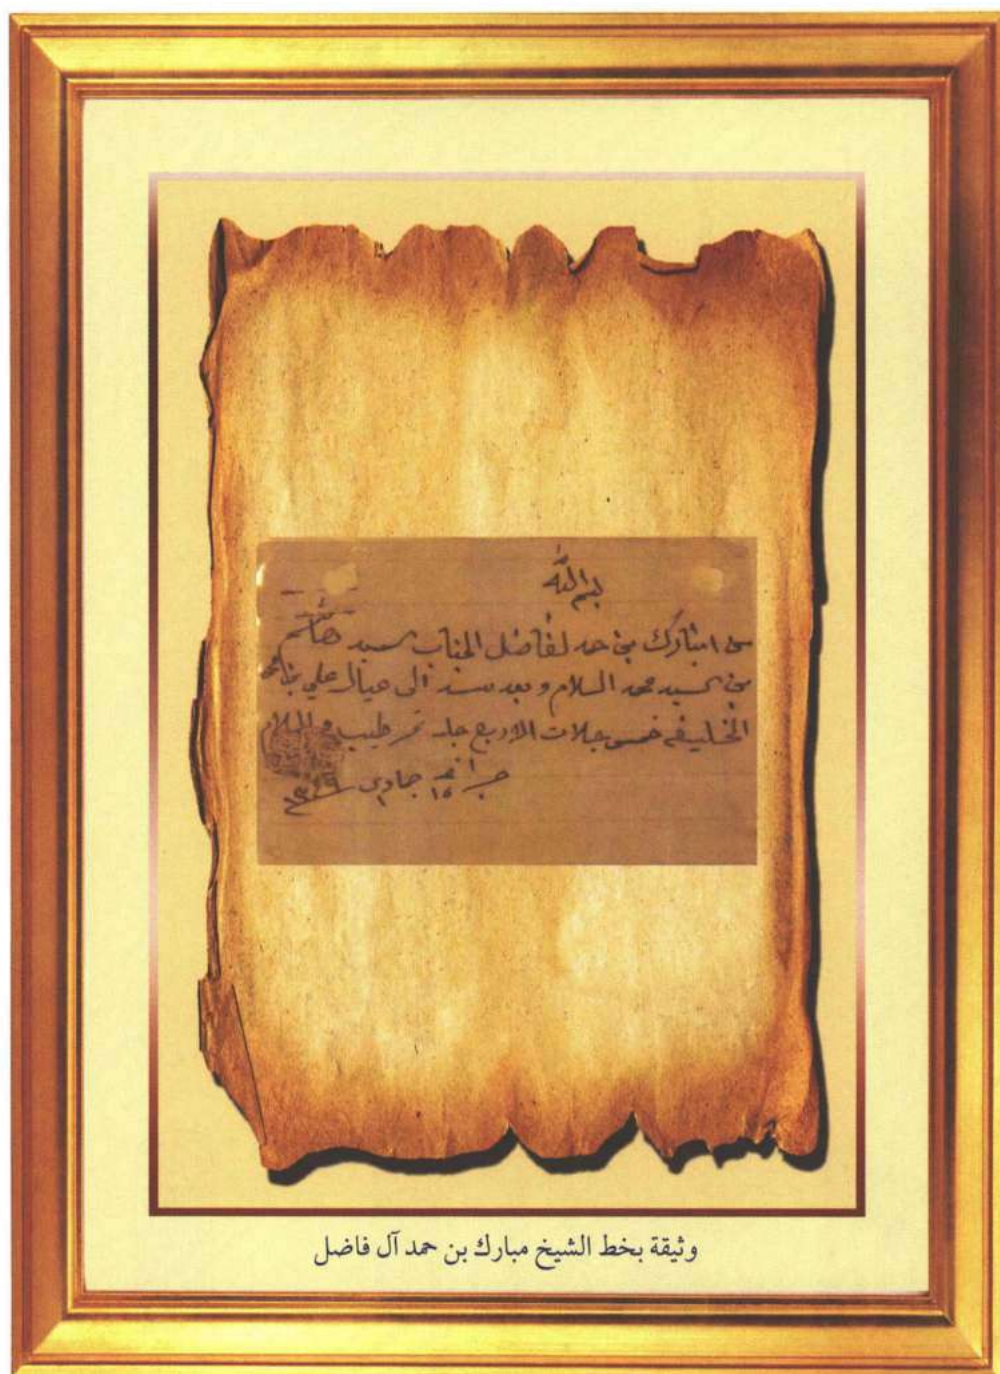 بسم الله
من امبارك بن حمد لفاضل الجناب سيد هاشم
بن السيد محمد السلام وبعد سند الى عيال علي بن
الخليفه خمس جلات الاربع جله تمر طيب والسلام
١٥ جماوى
وثيقة بخط الشيخ مبارك بن حمد آل فاضل